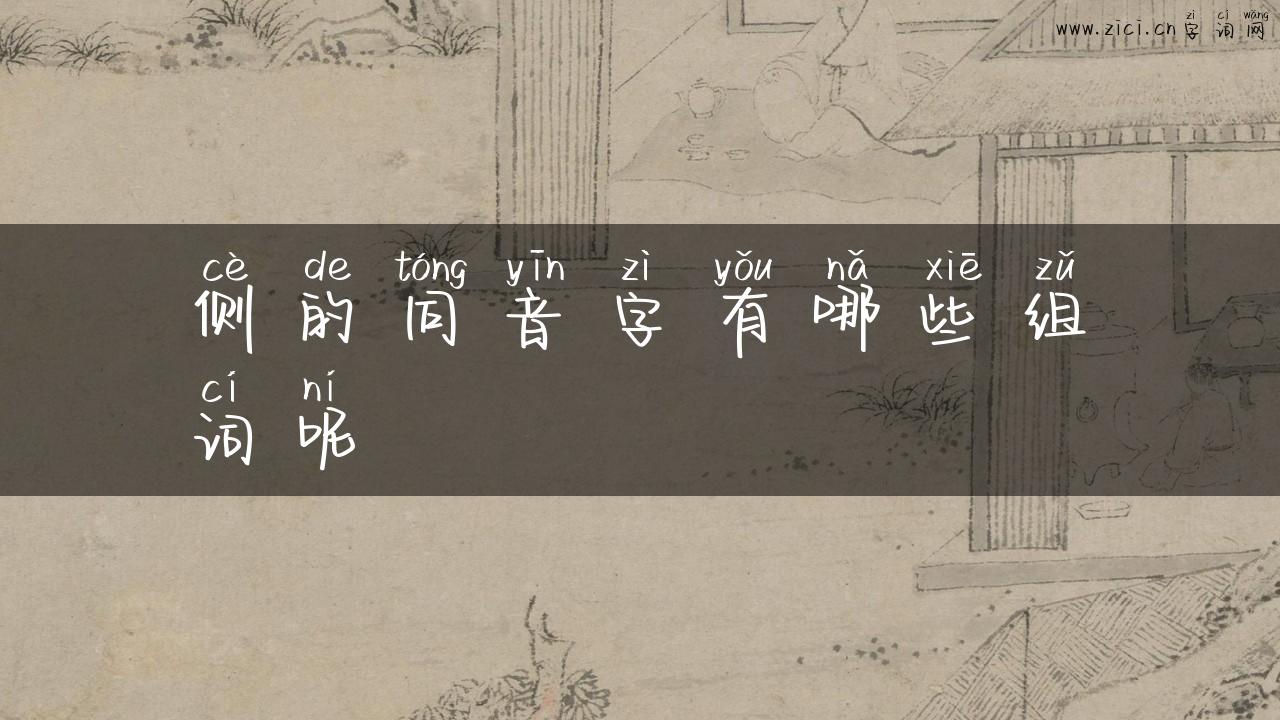 zì cí wǎng
www.zici.cn 字词网
cè de tóng yīn zì yǒu nǎ xiē zǔ
侧的同音字有哪些组
cí ní
词呢